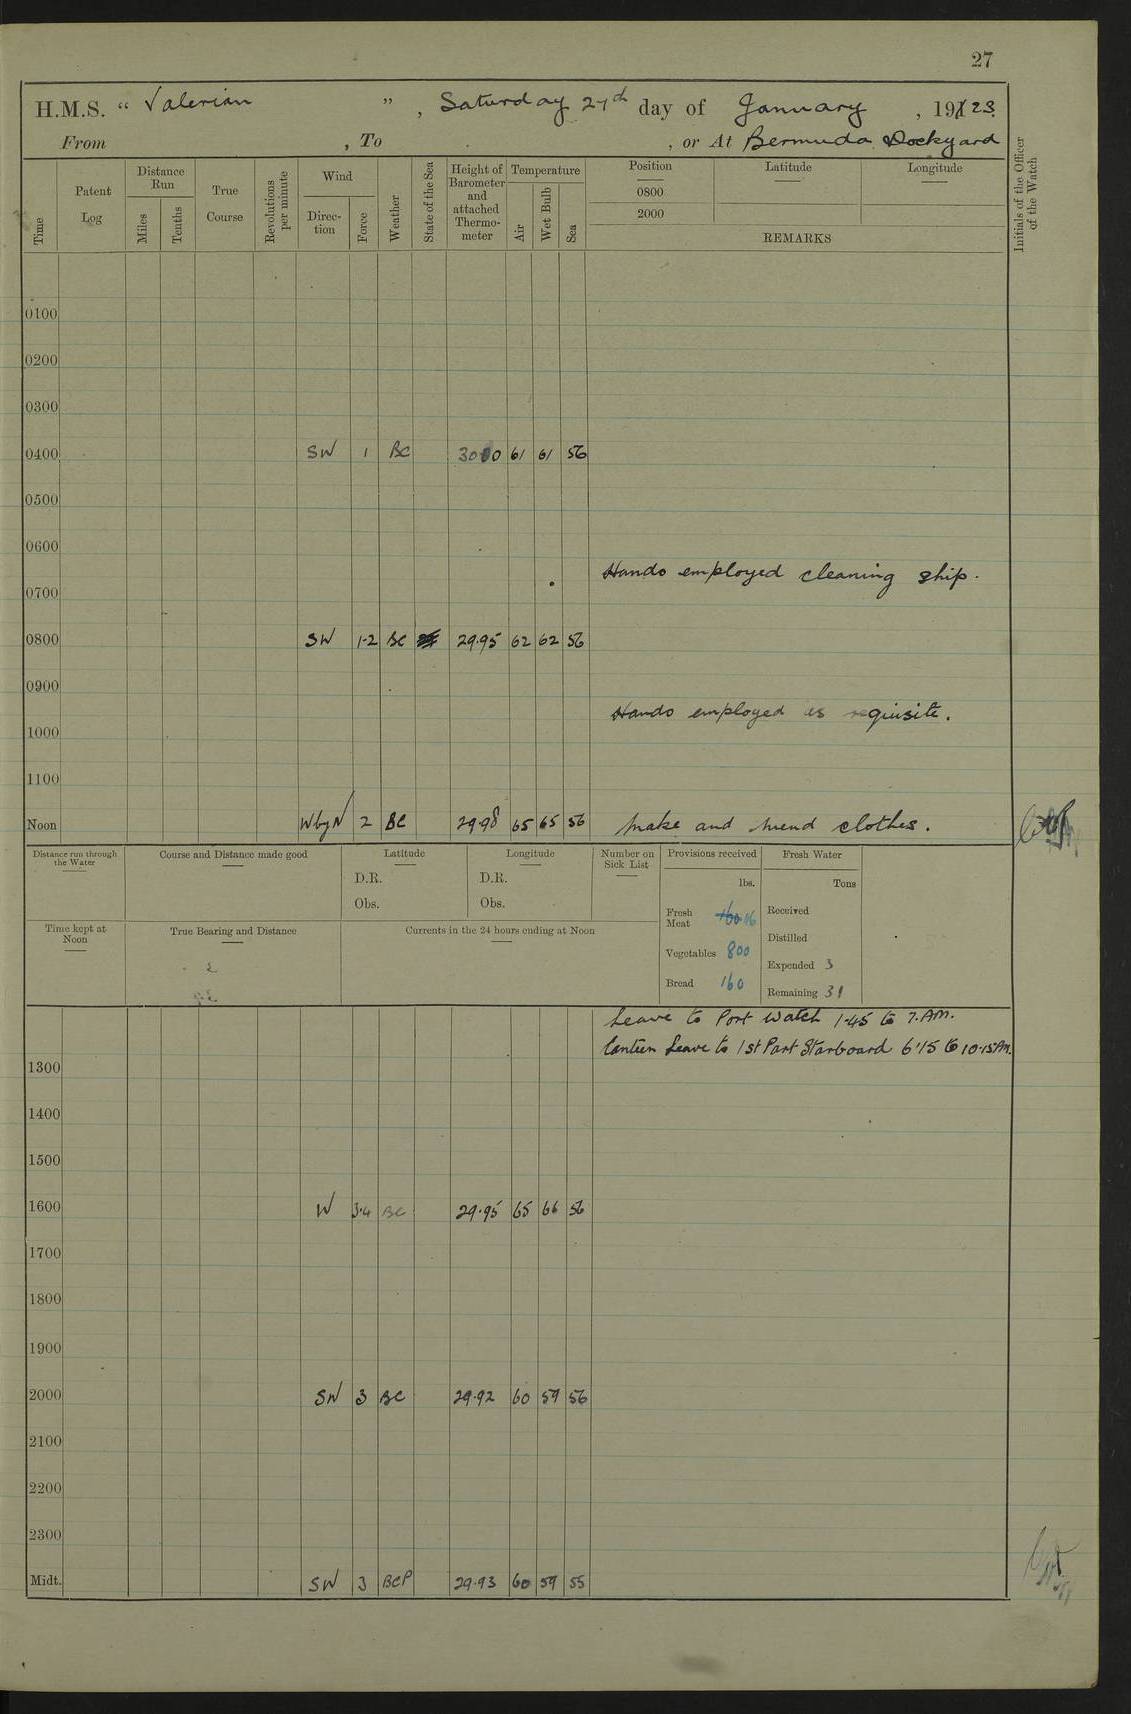 27
H.M.S. “ Valerian ” , Saturday 27th day of January , 19 23.
From , To , or At Bermuda Dockyard
Time
Patent Log
Distance Run
Miles
Tenths
True Course
Revolutions per minute
Wind
Direc-tion
Force
Weather
State of the Sea
Height of Barometer and attached Thermo-meter
Temperature
Air
Wet Bulb
Sea
Position Latitude Longitude
0800
2000
REMARKS
Initials of the Officer of the Watch
0100
0200
0300
0400 SW 1 BC 61 61 56
0500
0600
Hands employed cleaning ship.
0700
0800 SW 1-2 BC 29.95 62 62 56
0900
Hands employed as requisite.
1000
1100
Noon WbyN 2 BC 29.98 65 65 56 Make and mend clothes.
Distance run through the Water
Course and Distance made good
Latitude
D.R.
Obs.
Longitude
D.R.
Obs.
Number on Sick List
Provisions received
lbs.
Fresh Meat
Vegetables 800
Bread 160
Fresh Water
Tons
Received
Distilled
Expended 3
Remaining 31
Time kept at Noon
True Bearing and Distance
Currents in the 24 hours ending at Noon
Leave to Port Watch 1.45 to 7.AM.
Canteen Leave to 1st Part Starboard 6.15 to 10.15PM.
1300
1400
1500
1600 W 3.4 BC 29.95 65 66 56
1700
1800
1900
2000 SW 3 BC 29.92 60 59 56
2100
2200
2300
Midt. SW 3 BCP 29.93 60 59 55